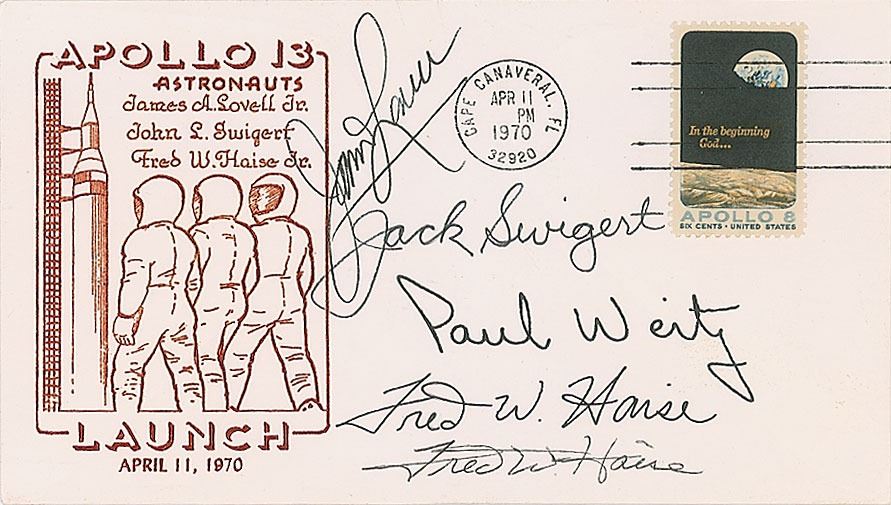 APOLLO 13
ASTRONAUTS
James A. Lovell Jr.
John L. Swigert
Fred W. Haise Jr.
LAUNCH
APRIL 11, 1970
CAPE CANAVERAL, FL
APR 11
PM
1970
32920
In the beginning
God...
APOLLO 8
SIX CENTS · UNITED STATES
Jim Lovell
Jack Swigert
Paul Weitz
Fred W. Haise
Fred W. Haise